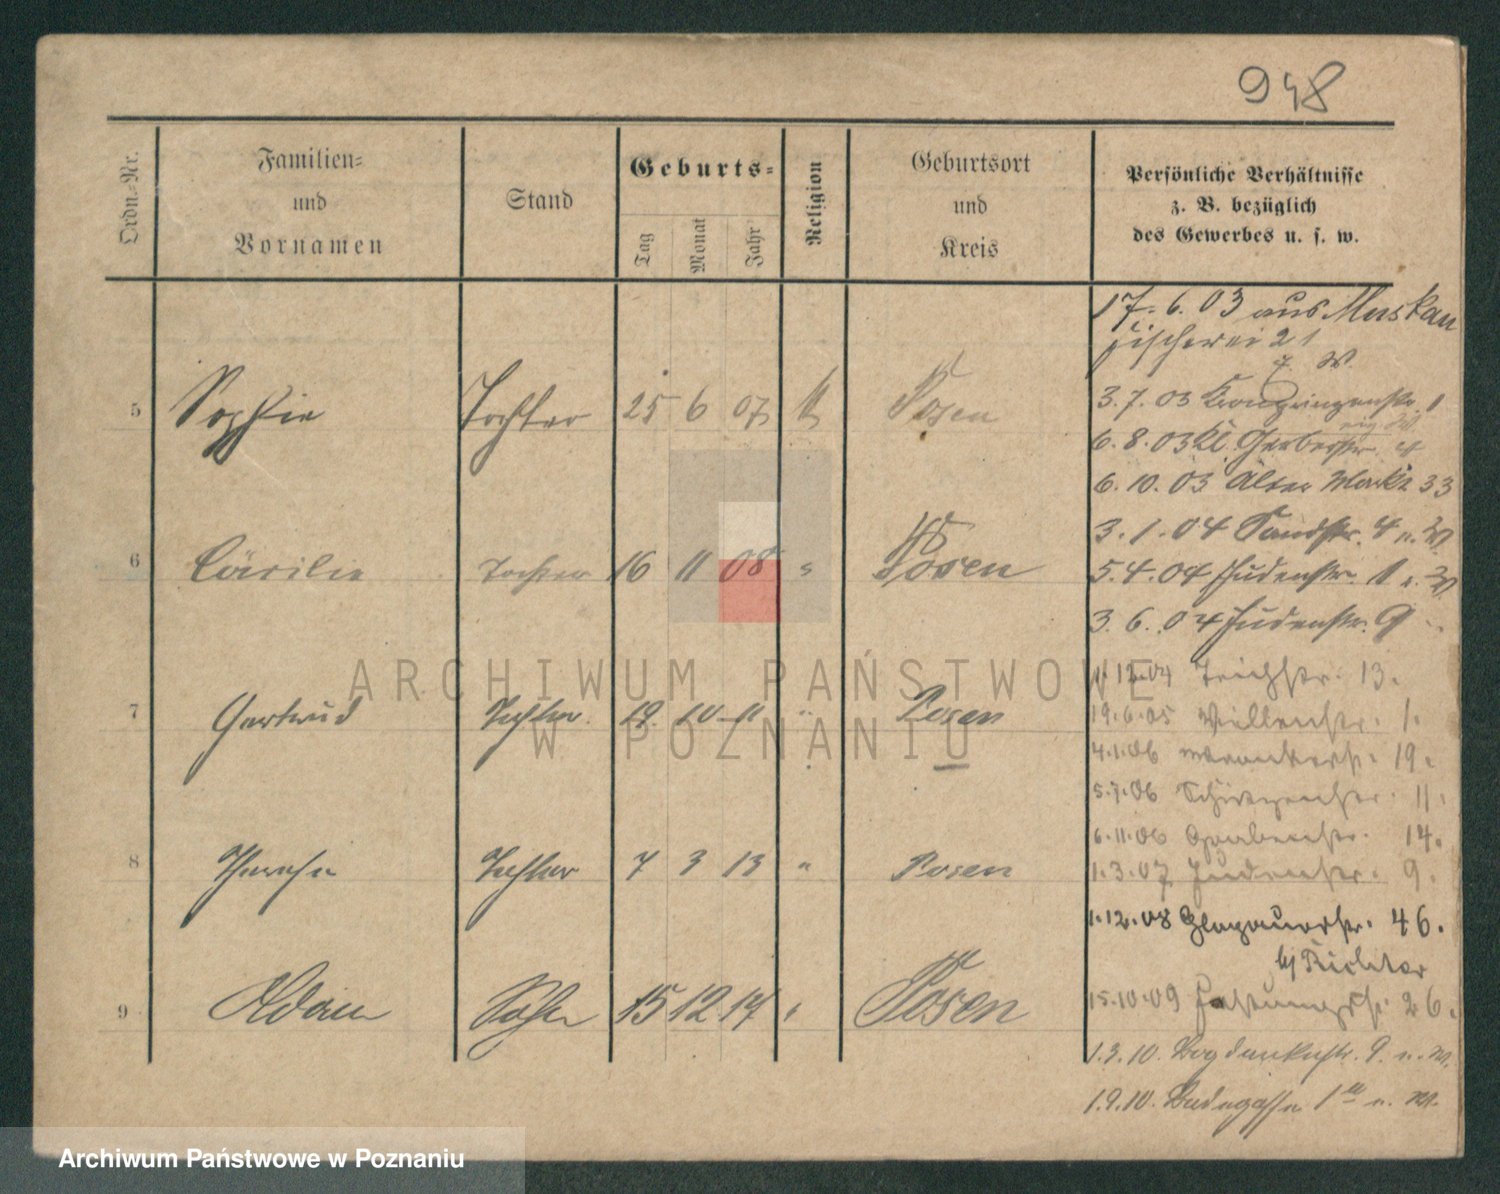 948
Ordn.-Nr.
Familien-
und
Vornamen
Stand
Geburts-
Tag
Monat
Jahr
Religion
Geburtsort
und
Kreis
Persönliche Verhältnisse
z. B. bezüglich
des Gewerbes u. s. w.
5 Sophie Tochter 25 6 07 Posen
6 Cäcilie Tochter 16 11 08 " Posen
7 Gertrud Tochter 18 10 11 " Posen
8 Therese Tochter 7 3 13 " Posen
9 Adam Sohn 15 12 14 " Posen
17. 6. 03 aus Muskau
Fischerei 21
z. W.
3. 7. 03 Kronprinzenstr. 1
6. 8. 03 Kl. Gerberstr. 4
6. 10. 03 Alter Markt 33
3. 1. 04 Sandstr. 4 n. W
5. 4. 04 Judenstr. 1 n. W
3. 6. 04 Judenstr. 9
1. 12. 04 Teichstr. 13.
19. 6. 05 Villenstr. 1.
4. 1. 06 19.
5. 7. 06 Schützenstr. 11.
6. 11. 06 Gerberstr. 14.
1. 3. 07 Judenstr. 9.
1. 12. 08 Glogauerstr. 46.
bj Richter
15. 10. 09 Festungsstr. 26.
1. 3. 10. Bogdankastr. 9. n. W.
1. 9. 10. Badegasse 1a n. W.
ARCHIWUM PAŃSTWOWE
W POZNANIU
Archiwum Państwowe w Poznaniu